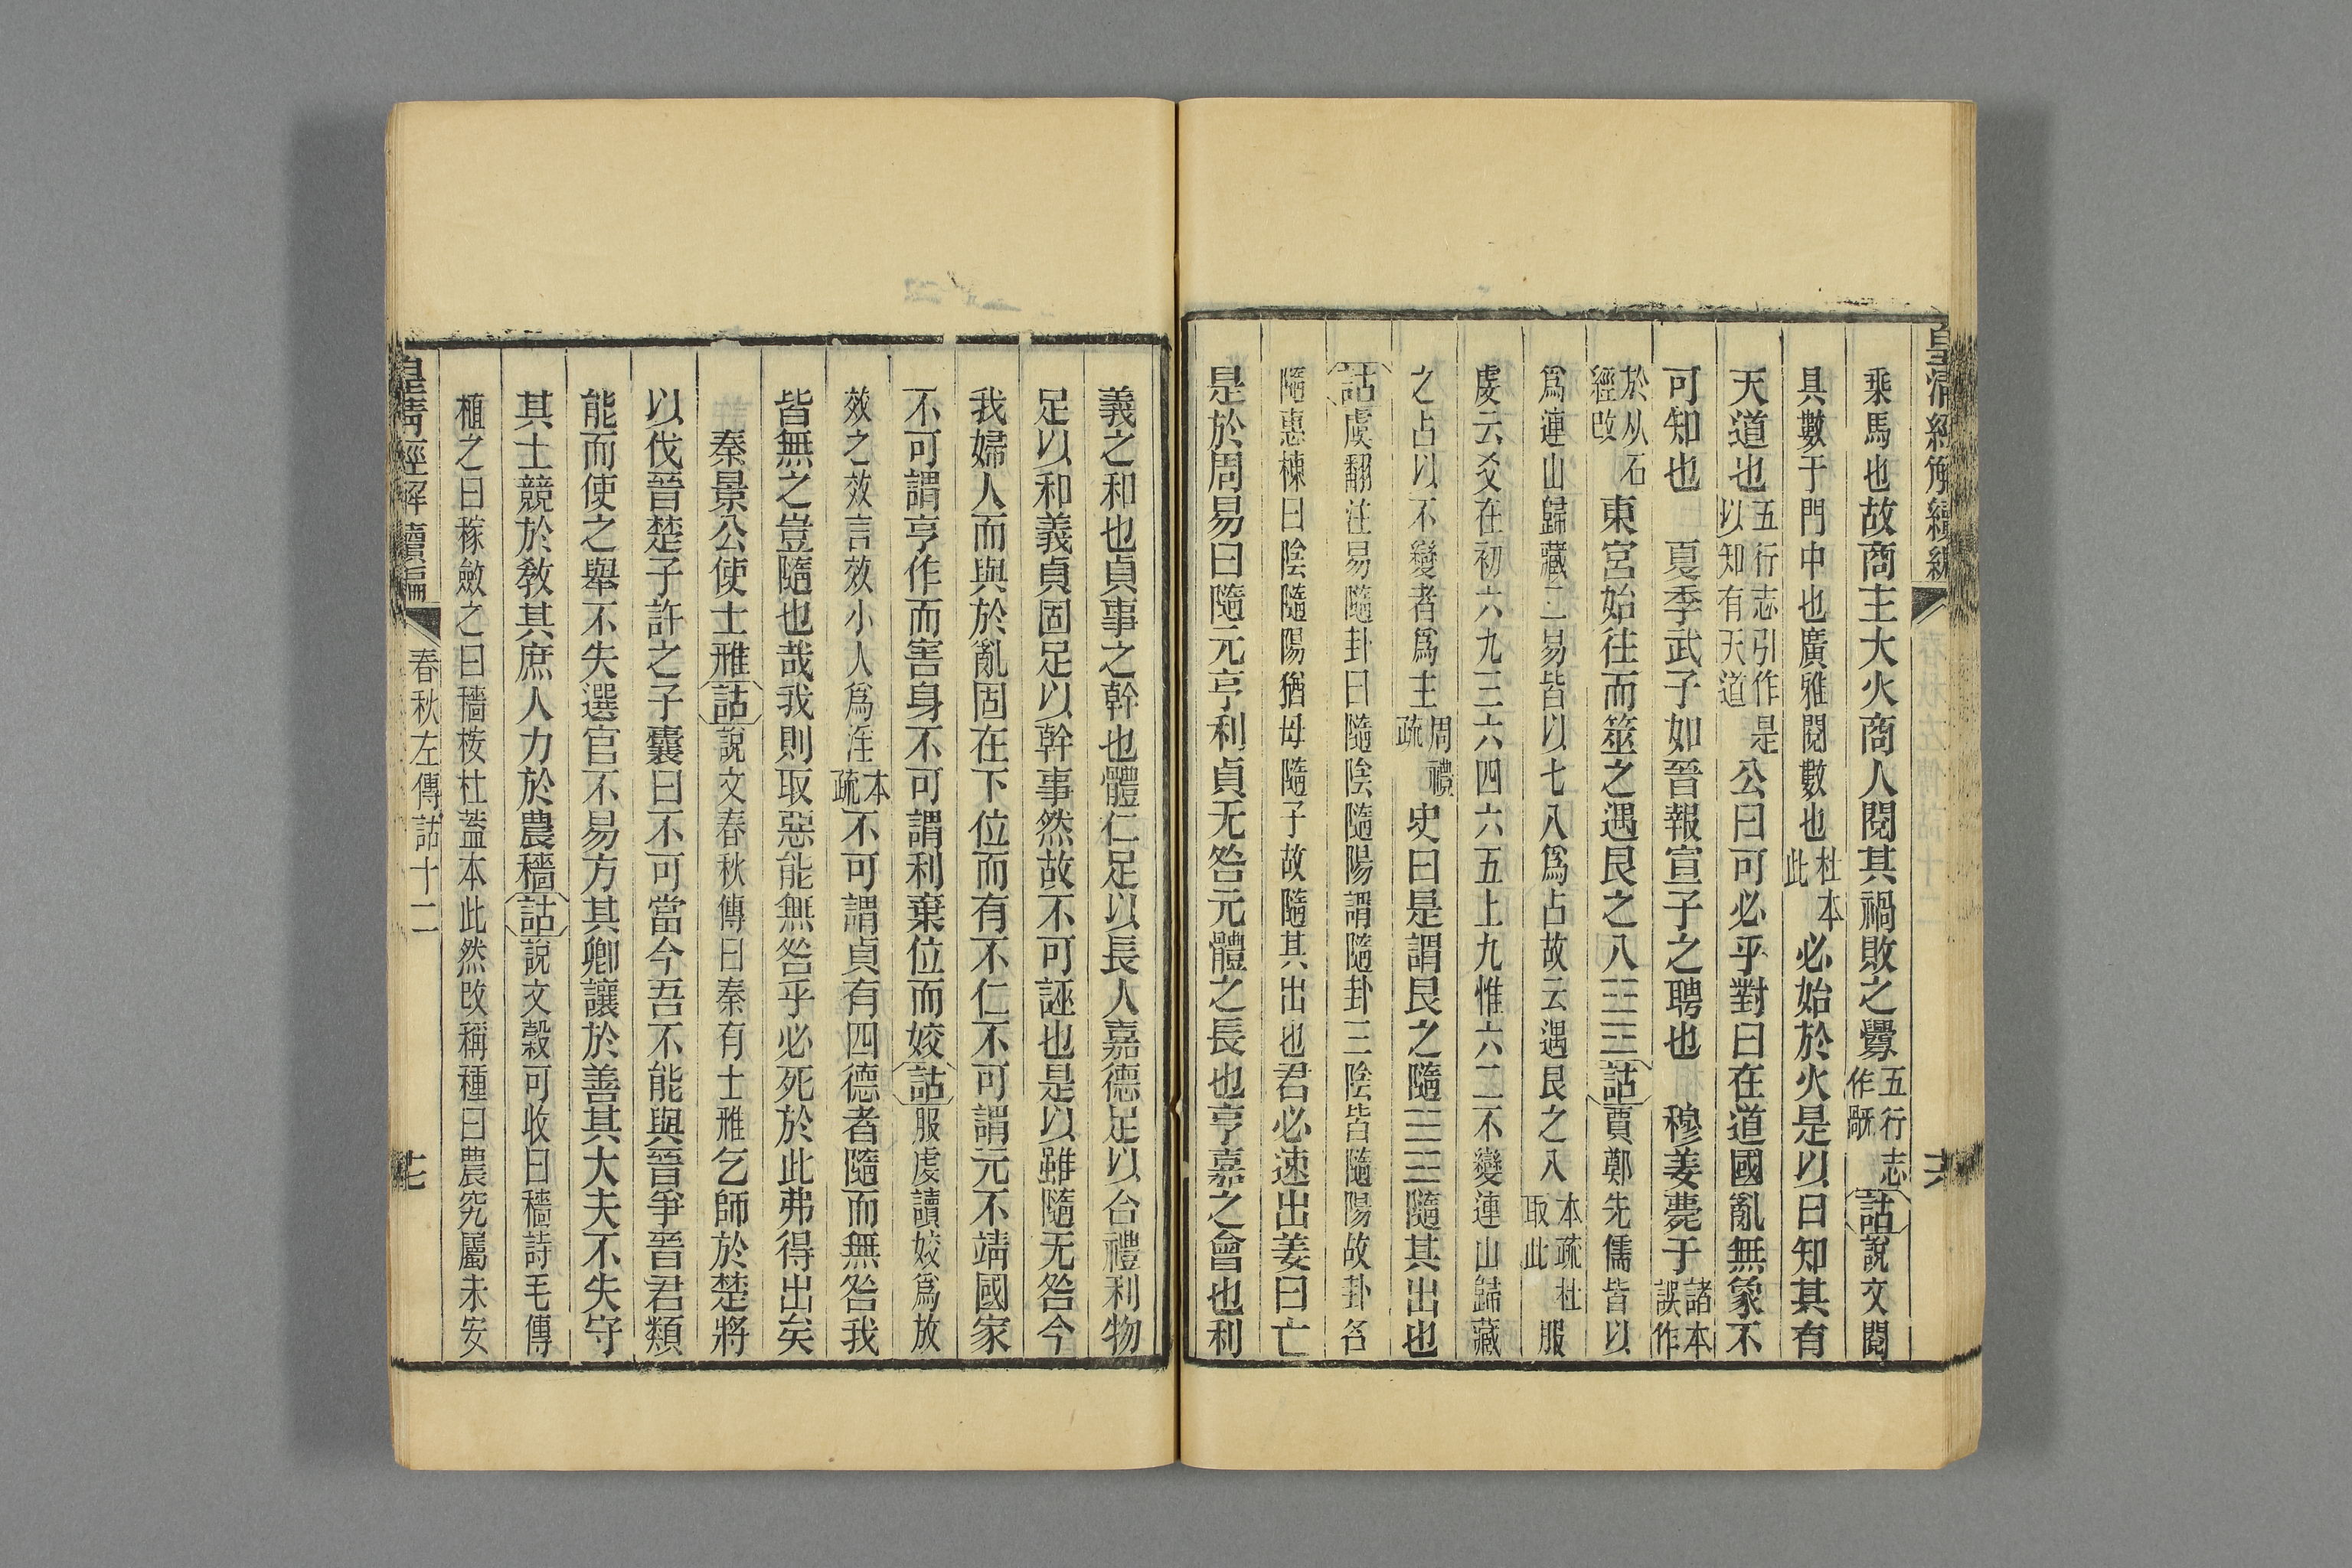 皇清經解續編
乘馬也故商主大火商人閱其禍敗之釁五行志作㕟詁說文閱
具數于門中也廣雅閱數也杜本此必始於火是以日知其有
天道也五行志引作是以知有天道公曰可必乎對曰在道國亂無象不
可知也　夏季武子如晉報宣子之聘也　穆姜薨于諸本誤作
於从石經改東宮始往而筮之遇艮之八☶☶詁賈鄭先儒皆以
爲連山歸藏二易皆以七八爲占故云遇艮之八本疏杜取此服
虔云爻在初六九三六四六五上九惟六二不變連山歸藏
之占以不變者爲主周禮疏史曰是謂艮之隨☱☳隨其出也
詁虞翻注易隨卦曰隨陰隨陽謂隨卦三陰皆隨陽故卦名
隨惠棟曰陰隨陽猶母隨子故隨其出也君必速出姜曰亡
是於周易曰隨元亨利貞无咎元體之長也亨嘉之會也利
義之和也貞事之幹也體仁足以長人嘉德足以合禮利物
足以和義貞固足以幹事然故不可誣也是以雖隨无咎今
我婦人而與於亂固在下位而有不仁不可謂元不靖國家
不可謂亨作而害身不可謂利棄位而姣詁服虔讀姣爲放
效之效言效小人爲淫本疏不可謂貞有四德者隨而無咎我
皆無之豈隨也哉我則取惡能無咎乎必死於此弗得出矣
秦景公使士雃詁說文春秋傳曰秦有士雃乞師於楚將
以伐晉楚子許之子囊曰不可當今吾不能與晉爭晉君類
能而使之舉不失選官不易方其卿讓於善其大夫不失守
其士競於敎其庶人力於農穡詁說文穀可收曰穡詩毛傳
植之曰稼斂之曰穡桉杜蓋本此然改稱種曰農究屬未安
皇清經解續編　春秋左傳詁十二　十七